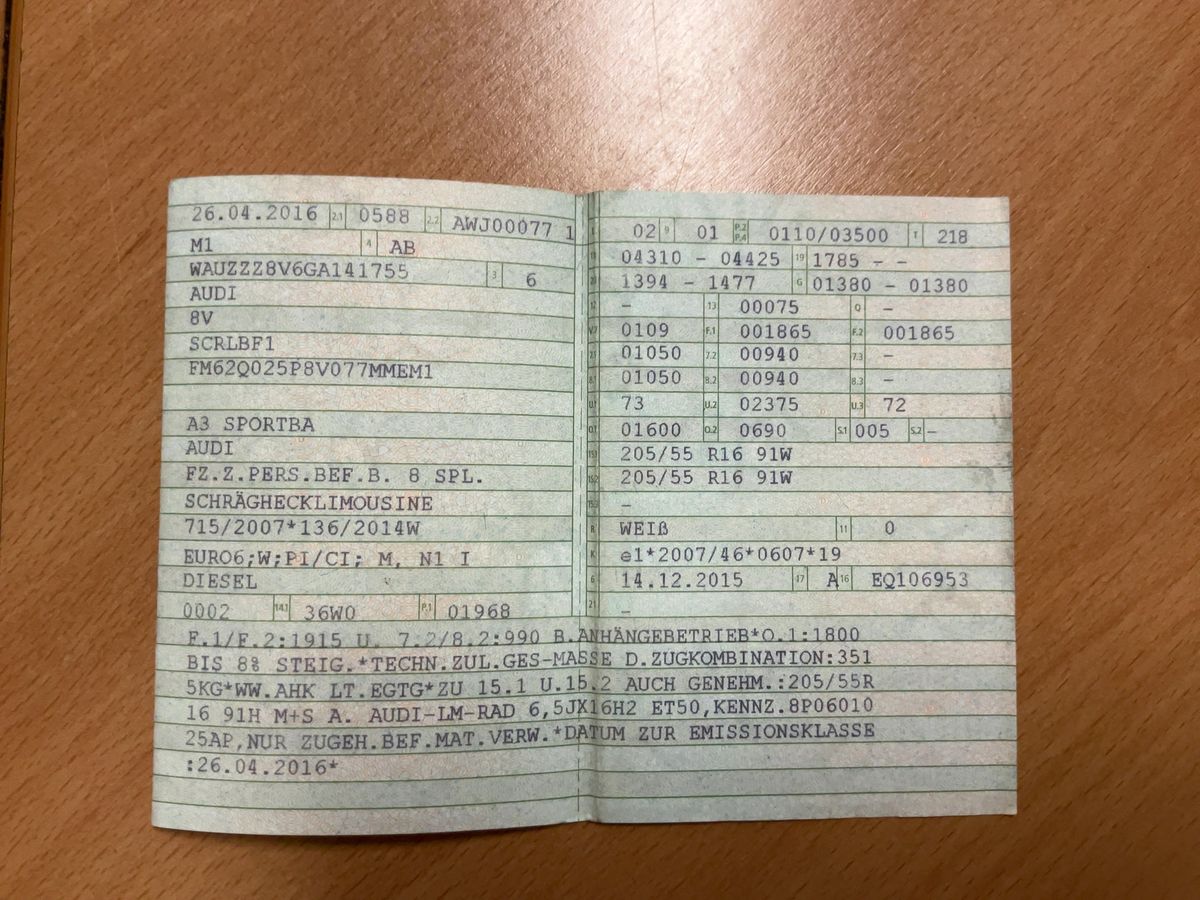 26.04.2016 2.1 0588 2.2 AWJ00077 1
M1 4 AB
WAUZZZ8V6GA141755 3 6
AUDI
8V
SCRLBF1
FM62Q025P8V077MMEM1
A3 SPORTBA
AUDI
FZ.Z.PERS.BEF.B. 8 SPL.
SCHRÄGHECKLIMOUSINE
715/2007*136/2014W
EURO6;W;PI/CI; M, N1 I
DIESEL
0002 14.1 36W0 P.1 01968
02 9 01 P.2 P.4 0110/03500 T 218
18 04310 - 04425 19 1785 - -
20 1394 - 1477 G 01380 - 01380
12 - 13 00075 Q -
V.7 0109 F.1 001865 F.2 001865
7.1 01050 7.2 00940 7.3 -
8.1 01050 8.2 00940 8.3 -
U.1 73 U.2 02375 U.3 72
O.1 01600 O.2 0690 S.1 005 S.2 -
15.1 205/55 R16 91W
15.2 205/55 R16 91W
15.3 -
R WEIß 11 0
K e1*2007/46*0607*19
6 14.12.2015 17 A 16 EQ106953
21 -
F.1/F.2:1915 U. 7.2/8.2:990 B.ANHÄNGEBETRIEB*O.1:1800
BIS 8% STEIG.*TECHN.ZUL.GES-MASSE D.ZUGKOMBINATION:351
5KG*WW.AHK LT.EGTG*ZU 15.1 U.15.2 AUCH GENEHM.:205/55R
16 91H M+S A. AUDI-LM-RAD 6,5JX16H2 ET50,KENNZ.8P06010
25AP,NUR ZUGEH.BEF.MAT.VERW.*DATUM ZUR EMISSIONSKLASSE
:26.04.2016*